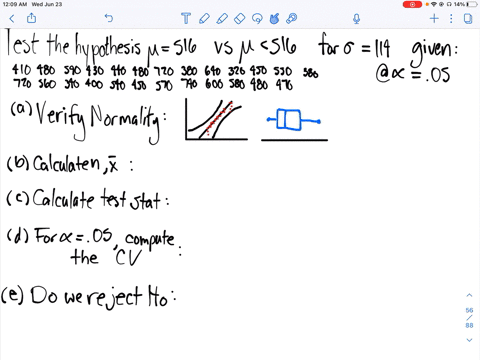 12:09 AM Wed Jun 23
14%
Test the hypothesis μ = 516 vs μ < 516 for σ = 114 given:
410 480 590 430 440 480 720 380 640 320 450 530 580
@α = .05
720 560 540 400 540 450 570 740 600 580 480 476
(a) Verify Normality:
(b) Calculate n, x̄ :
(c) Calculate test stat :
(d) For α = .05, compute
the CV :
(e) Do we reject Ho:
56
/
88